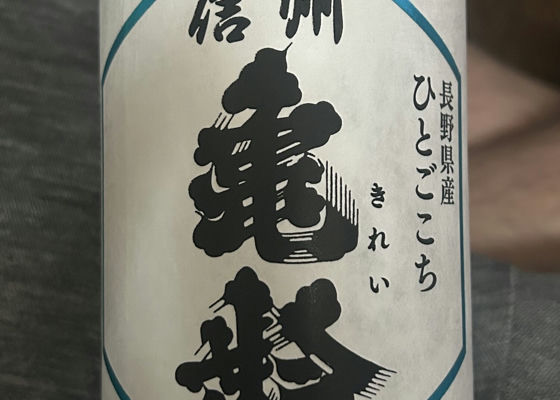 長野県産
ひとごこち
信州
亀齢
きれい